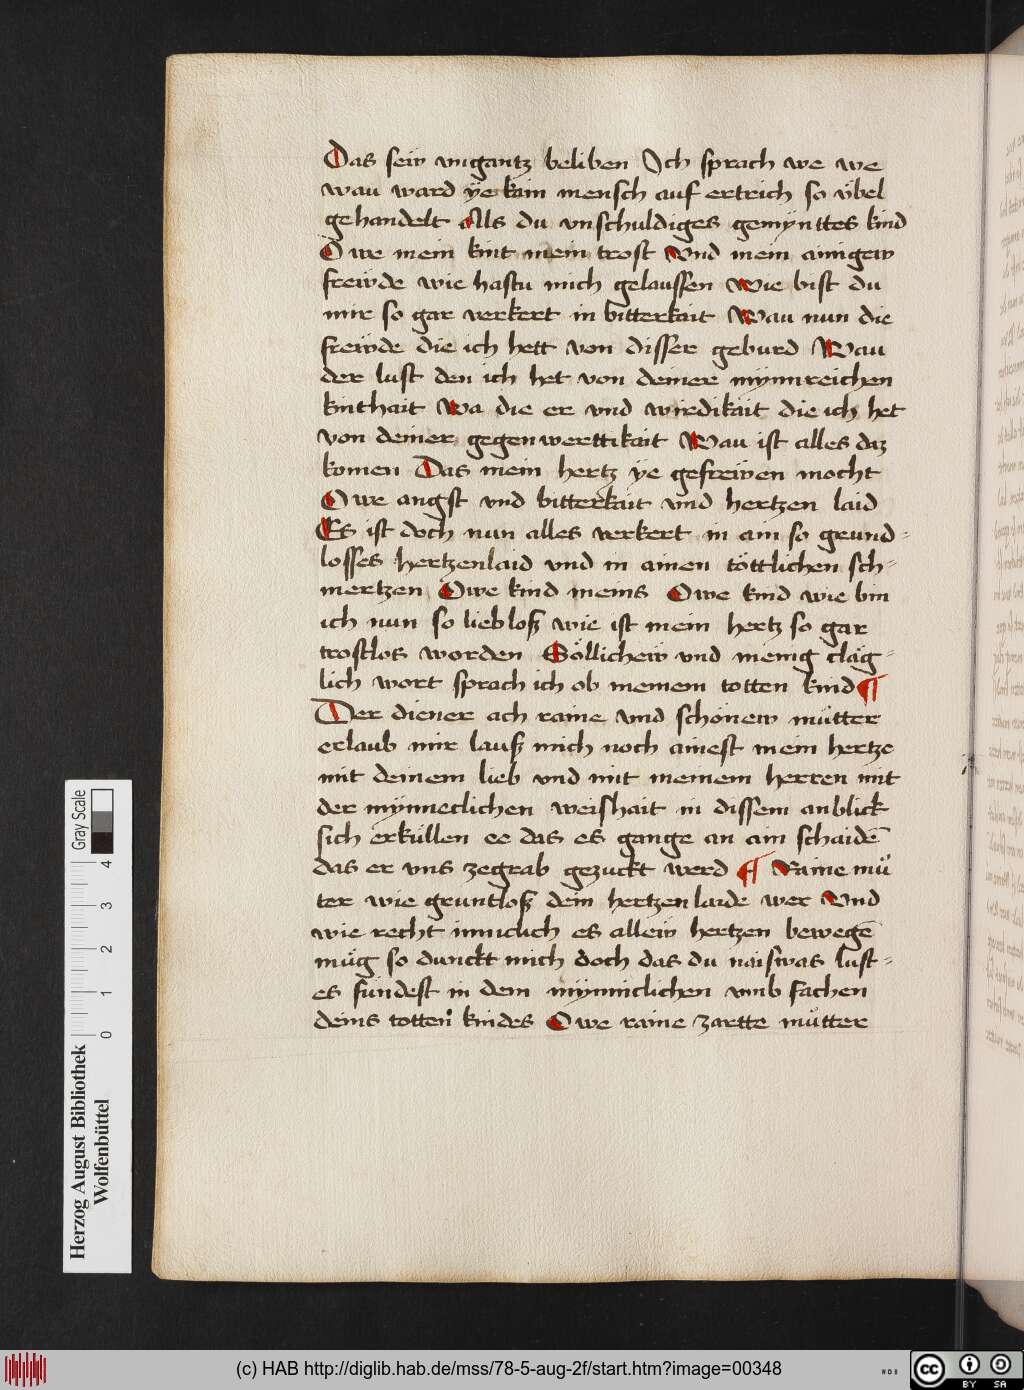 Das seiv vngantz beliben Jch sprach we we
wau ward ye kain mensch auf ertrich so v̈bel
gehandelt Als du vnschuldiges gemÿnttes kind
O we mein kint mein trost Vnd mein ainigew
frewde wie hastu mich gelaussen Wie bist du
mir so gar verkert in bitterkait Wau nun die
frewde die ich hett von disser geburd Wau
der lust den ich het von deiner mÿnnreichen
kinthait Wa die er vnd wirdikäit die ich het
von deiner gegenwerttikait Wau ist alles daz
komen Das mein hertz ÿe gefrewen mocht
O we angst vnd bitterkait vnd hertzen laid
Es ist doch nun alles verkert in ain so grund-
losses hertzenlaid vnd in ainen töttlichen sch-
mertzen Owe kind meins Owe kind wie bin
ich nun so liebloß wie ist mein hertz so gar
trostlos worden Söllichew vnd menig cläg-
lich wort sprach ich ob meinem totten kind ¶
Der diener ach raine vnd schönew mütter
erlaub mir lauß mich noch ainest mein hertze
mit deinem lieb vnd mit meinem herren mit
der mÿnneclichen weishait in dissem anblick
sich erküllen ee das es gange an ain schaidē
das er vns zegrab gezuckt werd ¶ Raine mů
ter wie gruntloß dein hertzen laide wer Vnd
wie recht inniclich es allew hertzen bewegē
müg so dunckt mich doch das du naiswas lust-
es fundest in dem mÿnniclichen vmb fachen
deins totten kindes Owe raine zartte mütter
Herzog August Bibliothek
Wolfenbüttel
0 1 2 3 4
Gray Scale
(c) HAB http://diglib.hab.de/mss/78-5-aug-2f/start.htm?image=00348
WDB
cc BY SA